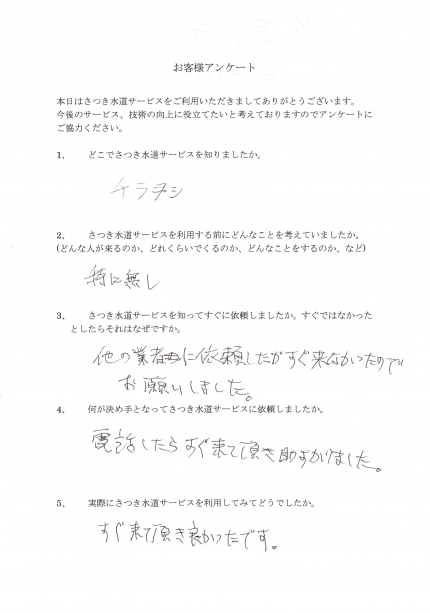 お客様アンケート
本日はさつき水道サービスをご利用いただきましてありがとうございます。
今後のサービス、技術の向上に役立てたいと考えておりますのでアンケートに
ご協力ください。
1、 どこでさつき水道サービスを知りましたか。
チラシ
2、 さつき水道サービスを利用する前にどんなことを考えていましたか。
(どんな人が来るのか、どれくらいでくるのか、どんなことをするのか、など)
特に無し
3、 さつき水道サービスを知ってすぐに依頼しましたか。すぐではなかった
としたらそれはなぜですか。
他の業者に依頼したがすぐ来なかったので
お願いしました。
4、 何が決め手となってさつき水道サービスに依頼しましたか。
電話したらすぐ来て頂き助かりました。
5、 実際にさつき水道サービスを利用してみてどうでしたか。
すぐ来て頂き良かったです。